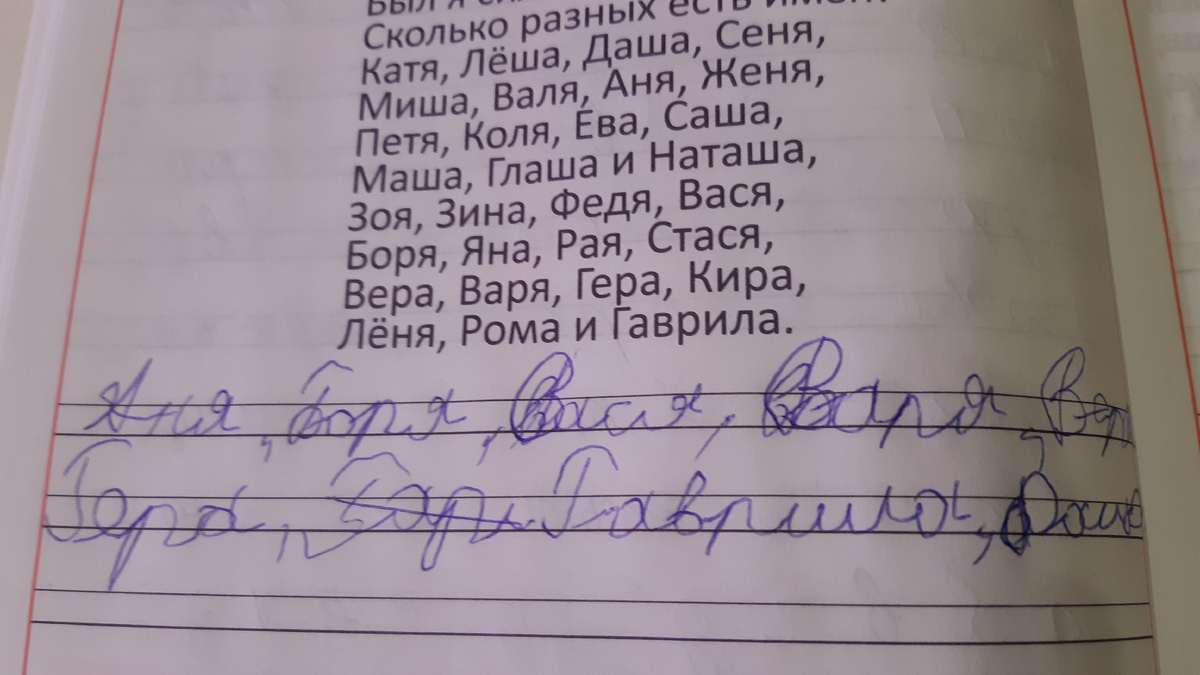 Сколько разных есть имён
Катя, Лёша, Даша, Сеня,
Миша, Валя, Аня, Женя,
Петя, Коля, Ева, Саша,
Маша, Глаша и Наташа,
Зоя, Зина, Федя, Вася,
Боря, Яна, Рая, Стася,
Вера, Варя, Гера, Кира,
Лёня, Рома и Гаврила.
Аня, Боря, Вася, Варя, Вер
Гера, Гаврила, Даша